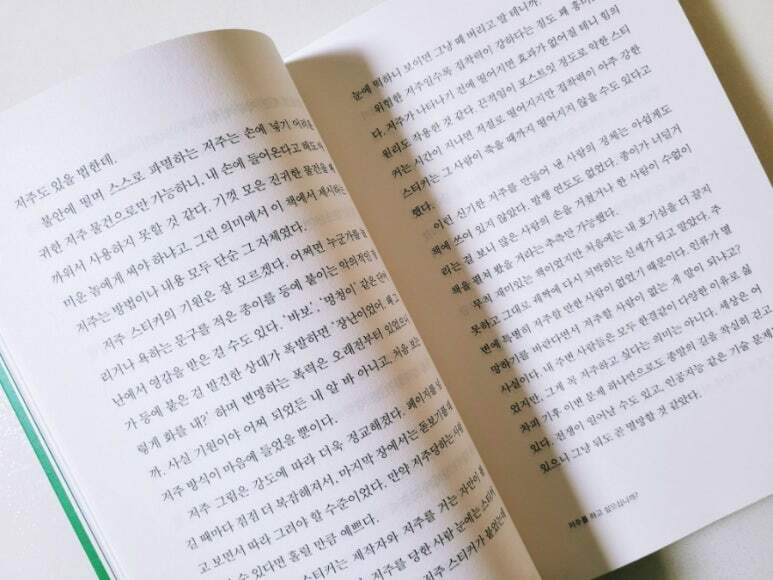 저주도 있을 법한데.
불안에 떨며 스스로 파멸하는 저주는 손에 넣기 어려운
귀한 저주 물건으로만 가능하니, 내 손에 들어온다고 해도 아
까워서 사용하지 못할 것 같다. 기껏 모은 진귀한 물건을 왜
미운 놈에게 써야 하냐고. 그런 의미에서 이 책에서 제시하는
저주는 방법이나 내용 모두 단순 그 자체였다.
저주 스티커의 기원은 잘 모르겠다. 어쩌면 누군가를 놀
리거나 욕하는 문구를 적은 종이를 등에 붙이는 악의적인 장
난에서 영감을 받은 걸 수도 있다. '바보', '멍청이' 같은 단어
가 등에 붙은 걸 발견한 상대가 폭발하면 '장난이었어. 왜 그
렇게 화를 내?' 하며 변명하는 폭력은 오래전부터 있었으니
까. 사실 기원이야 어찌 되었든 내 알 바 아니고, 처음 보는
저주 방식이 마음에 들었을 뿐이다.
저주 그림은 강도에 따라 더욱 정교해졌다. 페이지를 넘
길 때마다 점점 더 복잡해져서, 마지막 장에서는 돋보기를
고 보면서 따라 그려야 할 수준이었다. 만약 저주당하는
수 있다면 홀릴 만큼 예쁘다.
스티커는 제작자와 저주를 거는 자만이
저주를 당한 사람 눈에는 스티커
저주 스티커가 붙었는데
눈에 띄하니 보이면 그냥 떼 버리고 말 테니까.
위험한 저주일수록 접착력이 강하다는 점도 꽤 흥미
다. 저주가 나타나기 전에 떨어지면 효과가 없어질 테니 힘의
원리도 작용한 것 같다. 끈적임이 포스트잇 정도로 약한 스티
커는 시간이 지나면 저절로 떨어지지만 접착력이 아주 강한
스티커는 그 사람이 죽을 때까지 떨어지지 않을 수도 있다고
했다.
이런 신기한 저주를 만들어 낸 사람의 정체는 아쉽게도
책에 쓰여 있지 않았다. 발행 연도도 없었다. 종이가 너덜거
리는 걸 보니 많은 사람의 손을 거쳤거나 한 사람이 수없이
책을 펼쳐 봤을 거라는 추측만 가능했다.
무척 재미있는 책이었지만 처음에는 내 호기심을 더 끌지
못하고 그대로 새책에 다시 처박히는 신세가 되고 말았다. 주
변에 특별히 저주할 만한 사람이 없었기 때문이다. 인류가 멸
망하기를 바란다면서 저주할 사람이 없는 게 말이 되냐고?
사실이다. 내 주변 사람들은 모두 한결같이 다양한 이유로 싫
었지만, 그게 꼭 저주하고 싶다는 의미는 아니다. 세상은 어
차피 기후 이변 문제 하나만으로도 종말의 길을 착실히 걷고
있다. 전쟁이 일어날 수도 있고, 인공지능 같은 기술 문제
있으니 그냥 둬도 곧 멸망할 것 같았다.
저주를 하고 싶으십니까?